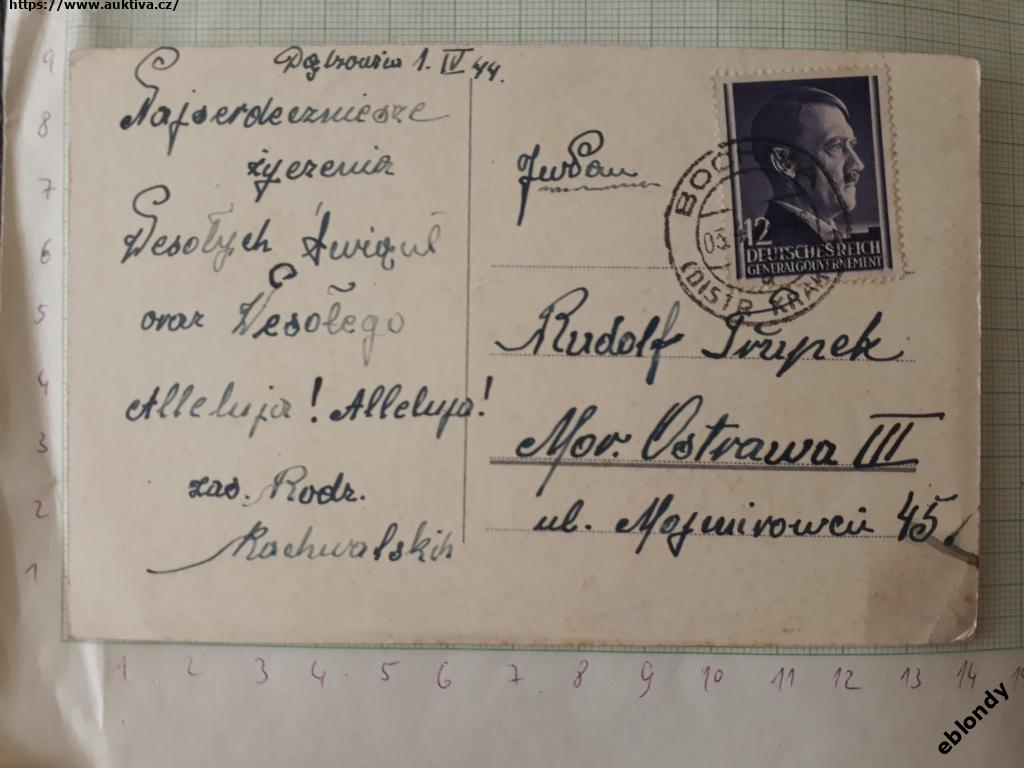 https://www.auktiva.cz/
1. IV 44.
Najserdeczniesze
życzenia
Wesołych Świąt
oraz Wesołego
Alleluja! Alleluja!
zas. Rodz.
Rachwalskih
BOCHNIA
(DISTR. KRAK
12
DEUTSCHES REICH
GENERALGOUVERNEMENT
Rudolf
Mor. Ostrawa III
ul. Mojmirowců 45.
9
8
7
6
5
4
3
2
1
1 2 3 4 5 6 7 8 9 10 11 12 13 14 15
eblondy